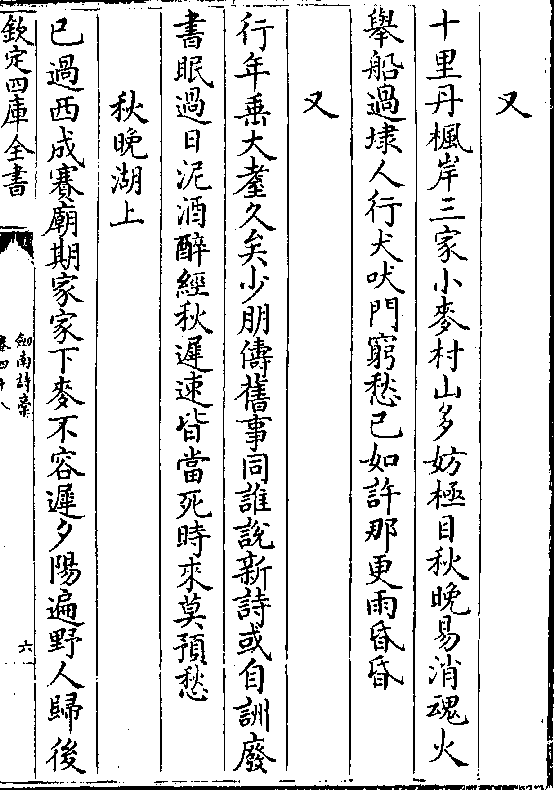 又
十里丹楓岸三家小麥村山多妨極目秋晚易消魂火
舉船過埭人行犬吠門窮愁已如許那更雨昏昏
又
行年垂大耋久矣少朋儔舊事同誰說新詩或自詶廢
書眠過日泥酒醉經秋遲速皆當死時來莫預愁
秋晚湖上
已過西成賽廟期家家下麥不容遲夕陽遍野人歸後
欽定四庫全書
劒南詩槀
卷四十八
六